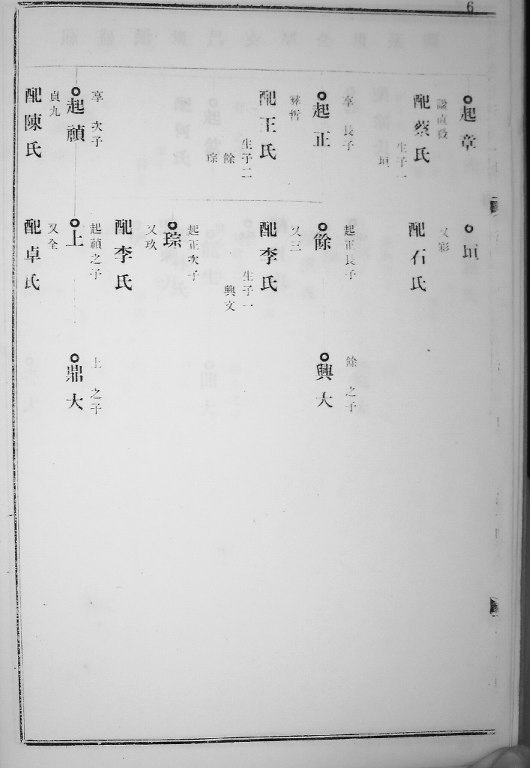 6
起章
謙直設
配蔡氏
生子一
垣
享 長子
起正
稣哲
配王氏
生子二
餘
琮
享 次子
起禎
貞九
配陳氏
垣
又彩
配石氏
起正長子
餘
又三
配李氏
生子一
興文
起正次子
琮
又玖
配李氏
起禎之子
上
又全
配卓氏
餘之子
興大
上之子
鼎大